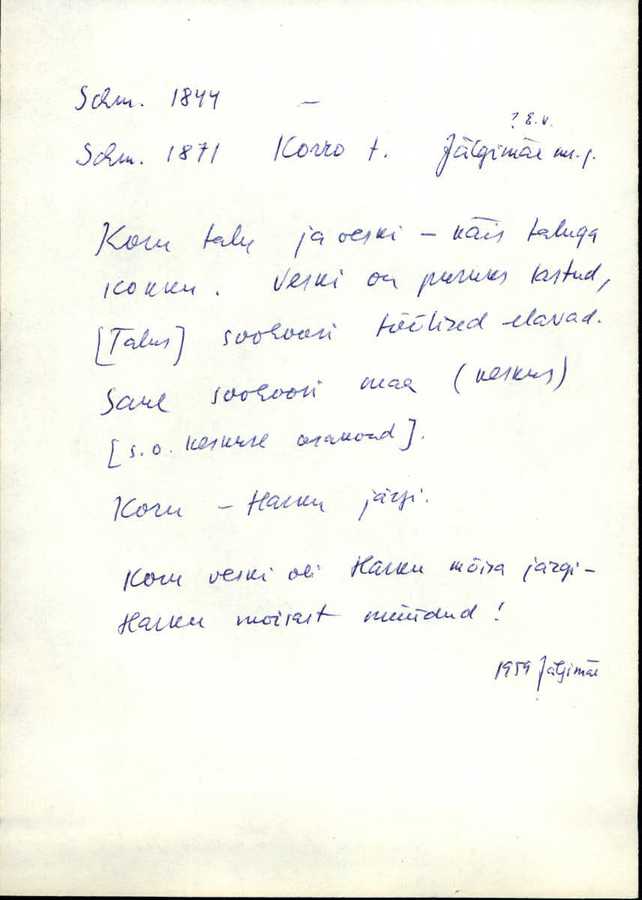 Schm. 1844 —
? E.V.
Schm. 1871 Korro t. Jälgimäe m. j.
Koru talu ja veski – käis taluga
kokku. Veski on puruks lastud,
[Talus] sovhoosi töölised elavad.
Saue sovhoosi maa (keskus)
[s.o. keskuse osakond].
Koru – Harku järgi.
Koru veski oli Harku mõisa järgi –
Harku moisast müüdud!
1959 Jälgimäe